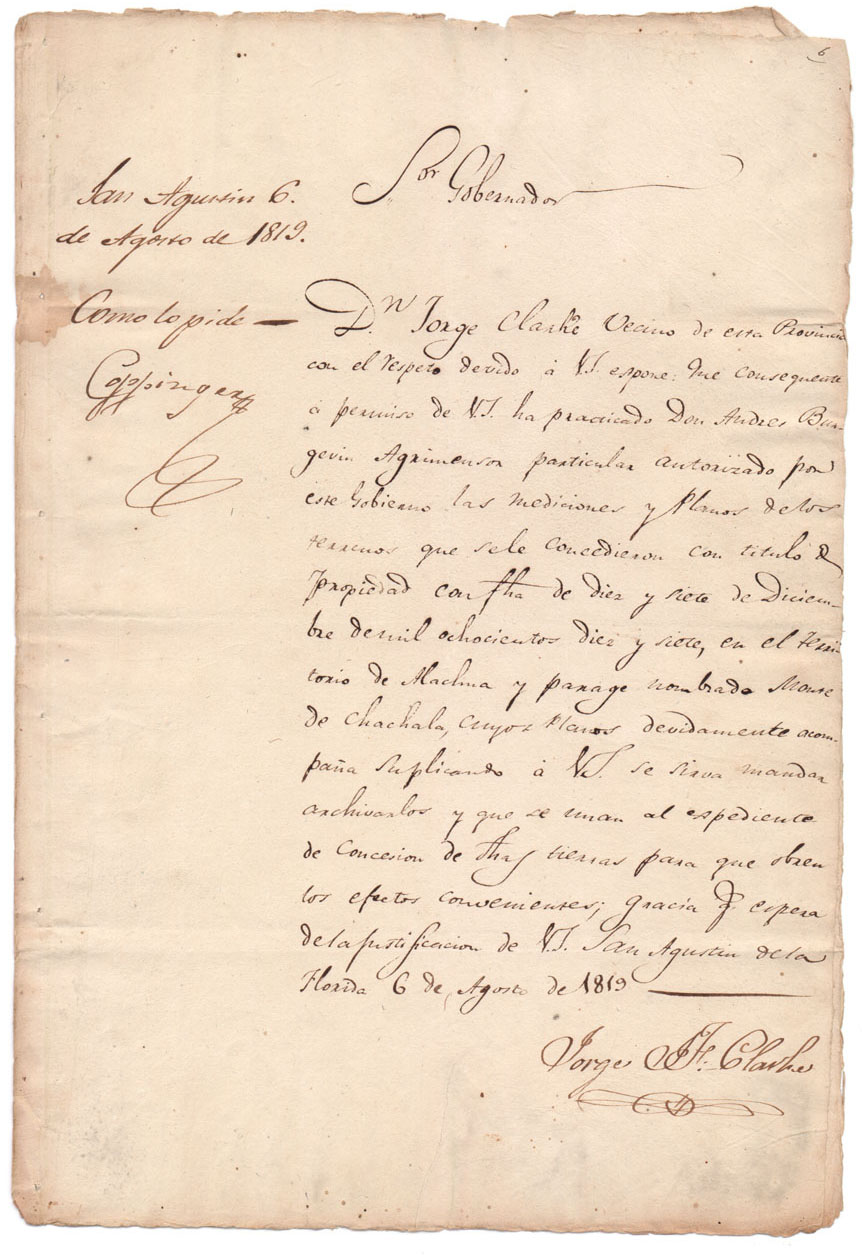 6
Sor Gobernador
San Agustin 6.
de Agosto de 1819.
Como lo pide
Coppinger
Dn. Jorge Clarke Vecino de esta Provincia
con el respeto devido á V.S. espone: Que consequente
á permiso de V.S. ha practicado Don Andres Bur-
gevin Agrimensor particular autorizado por
este Gobierno las mediciones y Planos de los
terrenos que sele concedieron con titulo de
propiedad con fha de diez y siete de Diciem-
bre de mil ochocientos diez y siete, en el terri
torio de Alachua y parage nombrado Monte
de Chachala, cuyos Planos devidamente acom-
paña suplicando á V.S. se sirva mandar
archivarlos y que se unan al expediente
de Concesion de dhas tierras para que obren
los efectos convenientes; gracia q espera
de la justificacion de V.S. San Agustin de la
Florida 6 de Agosto de 1819
Jorge J. F. Clarke